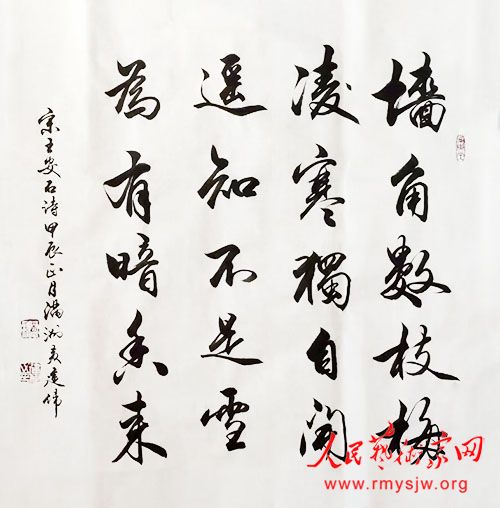 墙角数枝梅
凌寒獨自開
遥知不是雪
為有暗香来
宋王安石诗甲辰正月
人民藝術家网
www.rmysjw.org